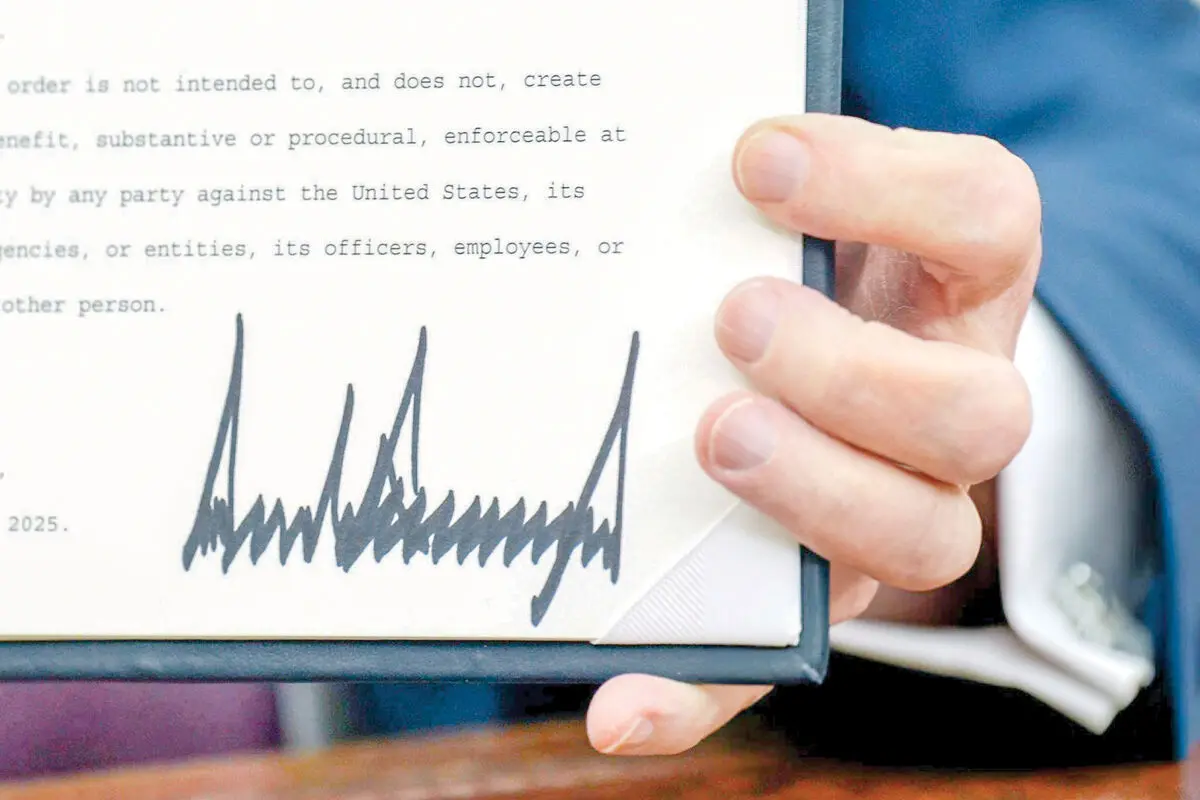 order is not intended to, and does not, create
enefit, substantive or procedural, enforceable at
ty by any party against the United States, its
gencies, or entities, its officers, employees, or
other person.
2025.